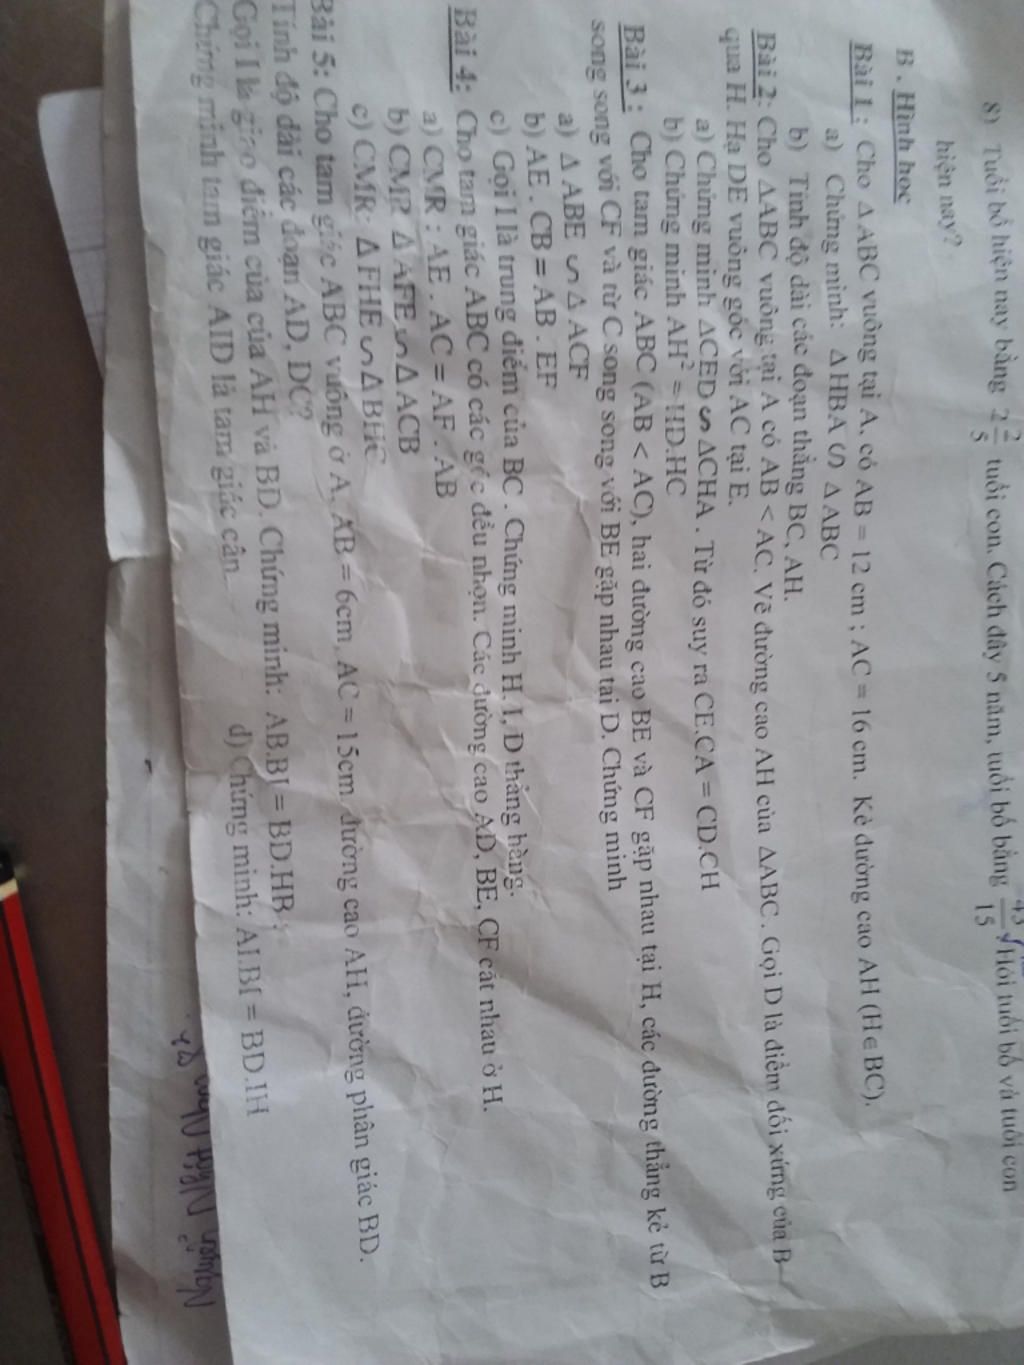 8) Tuổi bố hiện nay bằng 2 2/5 tuổi con. Cách đây 5 năm, tuổi bố bằng 43/15. Hỏi tuổi bố và tuổi con
hiện nay?
B. Hình học
Bài 1: Cho ΔABC vuông tại A, có AB = 12 cm ; AC = 16 cm. Kẻ đường cao AH (H∈BC).
a) Chứng minh: ΔHBA ∽ ΔABC
b) Tính độ dài các đoạn thẳng BC, AH.
Bài 2: Cho ΔABC vuông tại A có AB < AC. Vẽ đường cao AH của ΔABC. Gọi D là điểm đối xứng của B
qua H. Hạ DE vuông góc với AC tại E.
a) Chứng minh ΔCED ∽ ΔCHA. Từ đó suy ra CE.CA = CD.CH
b) Chứng minh AH² = HD.HC
Bài 3: Cho tam giác ABC (AB < AC), hai đường cao BE và CF gặp nhau tại H, các đường thẳng kẻ từ B
song song với CF và từ C song song với BE gặp nhau tại D. Chứng minh
a) Δ ABE ∽ Δ ACF
b) AE . CB = AB . EF
c) Gọi I là trung điểm của BC . Chứng minh H, I, D thẳng hàng.
Bài 4: Cho tam giác ABC có các góc đều nhọn. Các đường cao AD, BE, CF cắt nhau ở H.
a) CMR : AE . AC = AF . AB
b) CMR Δ AFE ∽ Δ ACB
c) CMR: Δ FHE ∽ Δ BHC
Bài 5: Cho tam giác ABC vuông ở A, AB = 6cm, AC = 15cm đường cao AH, đường phân giác BD.
Tính độ dài các đoạn AD, DC?
Gọi I là giao điểm của của AH và BD. Chứng minh: AB.BI = BD.HB
Chứng minh tam giác AID là tam giác cân. d) Chứng minh: AI.BI = BD.IH